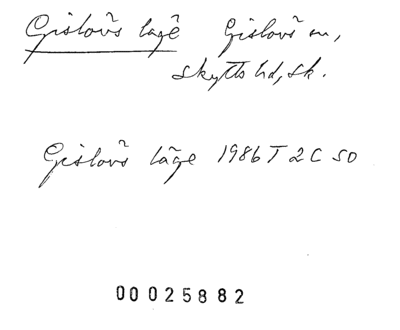 Gislövs läge Gislövs sn,
Skytts hd, Sk.
Gislövs läge 1986 T 2 C SO
00025882